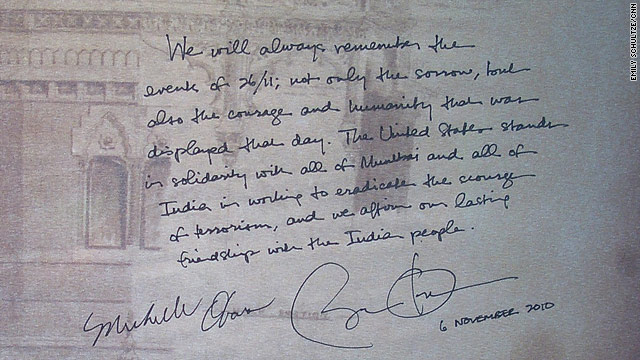 We will always remember the
events of 26/11; not only the sorrow, but
also the courage and humanity that was
displayed that day. The United States stands
in solidarity with all of Mumbai and all of
India in working to eradicate the scourge
of terrorism, and we affirm our lasting
friendship with the Indian people.
Michelle Obama
6 NOVEMBER 2010
EMILY SCHULTZE/CNN